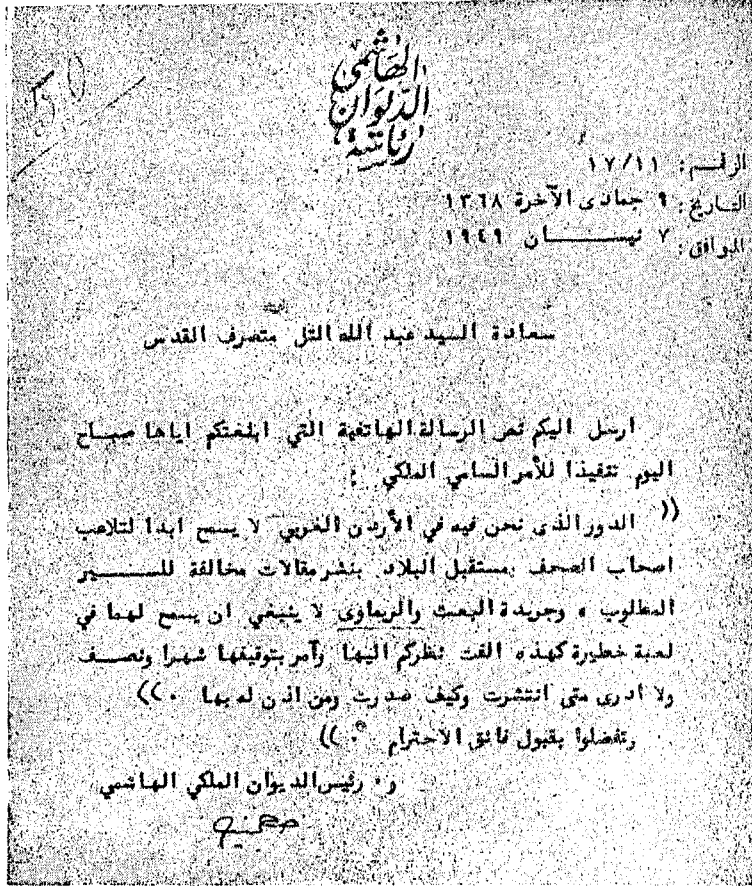 50
الهاشمي
الديوان
رئاسة
الرقم: ١٧/١١
التاريخ: ٩ جمادى الآخرة ١٣٦٨
الموافق: ٧ نيســـان ١٩٤٩
سعادة السيد عبد الله التل متصرف القدس
ارسل اليكم نص الرسالة الهاتفية التي ابلغتكم اياها صبـاح
اليوم تنفيذا للأمر السامي الملكي :
(( الدور الذى نحن فيه في الأردن الغربي لا يسمح ابدا لتلاعب
اصحاب الصحف بمستقبل البلاد بنشر مقالات مخالفة للســـير
المطلوب ، وجريدة البعث والريماوى لا ينبغي ان يسمح لهما في
لعبة خطيرة كهذه الفت نظركم اليها وآمر بتوقيفها شهرا ونصـف
ولا ادرى متى انتشرت وكيف صدرت ومن اذن له بها . ))
وتفضلوا بقبول فائق الاحترام . ))
ر. رئيس الديوان الملكي الهاشمي